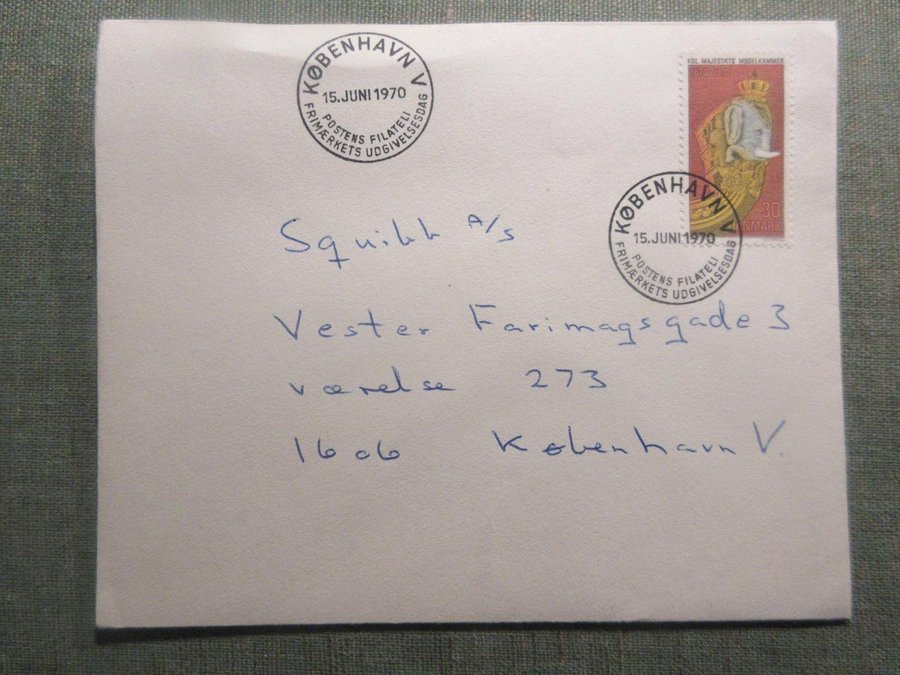 KØBENHAVN V
15.JUNI 1970
POSTENS FILATELI
FRIMÆRKETS UDGIVELSESDAG
KGL. MAJESTÆTS MODELKAMMER
1670-1970
30
DANMARK
KØBENHAVN V
15.JUNI 1970
POSTENS FILATELI
FRIMÆRKETS UDGIVELSESDAG
Squibb A/S
Vester Farimagsgade 3
værelse 273
1606 København V.